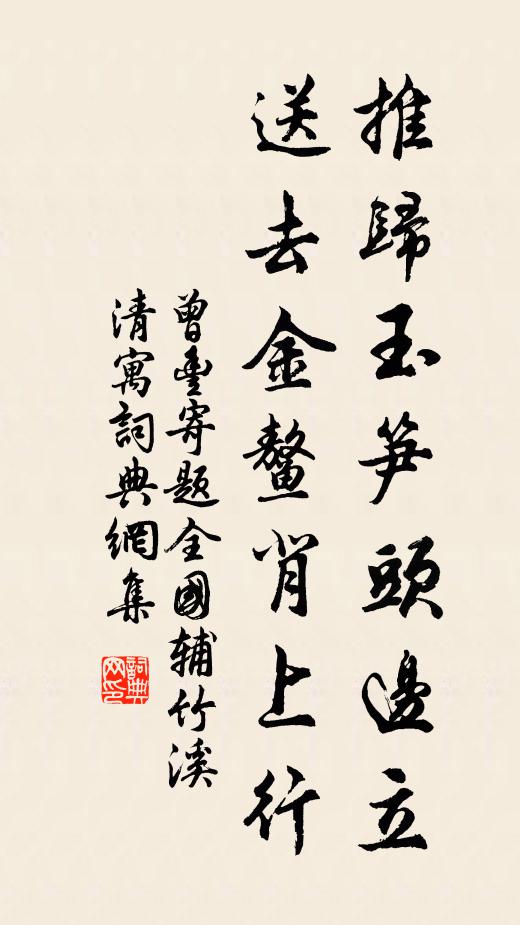 推歸玉笋頭邊立
送去金鰲背上行
曾豐寄題全國輔竹溪
清寓詞典網集
詞典网印